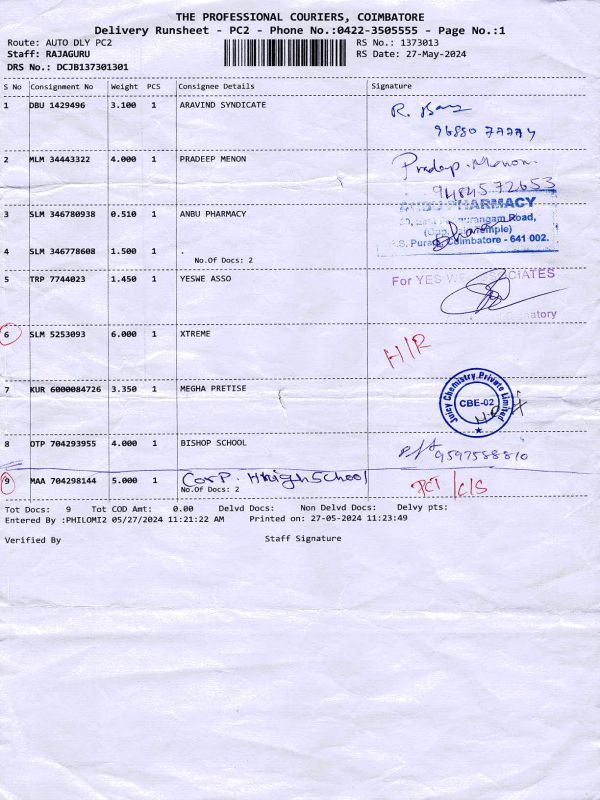 THE PROFESSIONAL COURIERS, COIMBATORE
Delivery Runsheet - PC2 - Phone No.:0422-3505555 - Page No.:1
Route: AUTO DLY PC2 RS No.: 1373013
Staff: RAJAGURU RS Date: 27-May-2024
DRS No.: DCJB137301301
S No Consignment No Weight PCS Consignee Details Signature
1 DBU 1429496 3.100 1 ARAVIND SYNDICATE
96880
2 MLM 34443322 4.000 1 PRADEEP MENON Pradeep.Menon.
9484572653
3 SLM 346780938 0.510 1 ANBU PHARMACY ANBU PHARMACY
Road,
4 SLM 346778608 1.500 1 . Coimbatore - 641 002.
No.Of Docs: 2
5 TRP 7744023 1.450 1 YESWE ASSO For YES
6 SLM 5253093 6.000 1 XTREME H/R
7 KUR 6000084726 3.350 1 MEGHA PRETISE Juicy Chemistry Private Limited
CBE-02
8 DTP 704293955 4.000 1 BISHOP SCHOOL 9597588810
9 MAA 704298144 5.000 1 Corp. Hhigh School
No.Of Docs: 2
Tot Docs: 9 Tot COD Amt: 0.00 Delvd Docs: Non Delvd Docs: Delvy pts:
Entered By :PHILOMI2 05/27/2024 11:21:22 AM Printed on: 27-05-2024 11:23:49
Verified By Staff Signature